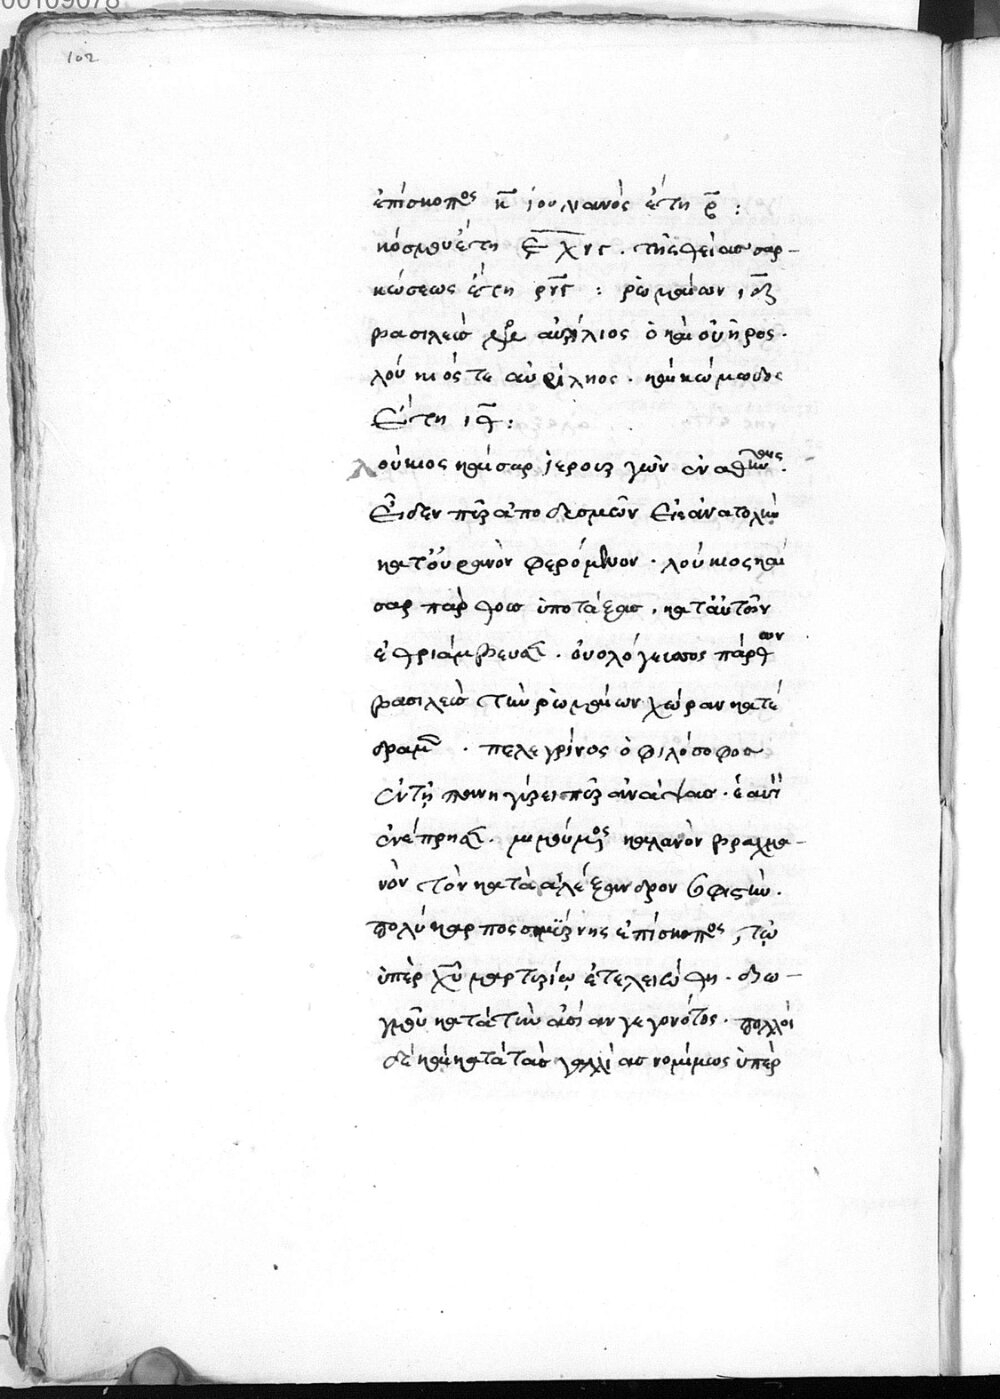 00109078
102
ἐπίσκοπος κ̅ ἰουλιανὸς ἔτη ρ̅ :
κόσμου ἔτη ε̅ χ̅ν̅ς̅ . τῆς θείας σαρ-
κώσεως ἔτη ρ̅ν̅ς̅ : ῥωμαίων ι̅ζ̅
βασιλεὺς αὐρίλιος ὁ καὶ οὐῆρος .
λούκιός τε αὐρίλιος . καὶ κώμοδος
ἔτη ι̅θ̅ :
λούκιος καῖσαρ ἱερουργῶν ἐν ἀθήναις .
εἶδεν πῦρ ἀπὸ δυσμῶν εἰς ἀνατολὴν
κατ' οὐρανὸν φερόμενον . λούκιος καῖ
σαρ πάρθοις ὑποτάξας . κατ' αὐτῶν
ἐθριάμβευσε . οὐολόγεσος πάρθων
βασιλεὺς τὴν ῥωμαίων χώραν κατέ
δραμε . πελεγρίνος ὁ φιλόσοφος
ἐν τῇ πανηγύρει πῦρ ἀνάψας . ἑαυτὸν
ἐνέπρησε . μιμούμενος καλανὸν βραχμα-
νὸν τὸν κατὰ ἀλέξανδρον σοφιστὴν .
πολύκαρπος σμύρνης ἐπίσκοπος , τῷ
ὑπὲρ χυ μαρτυρίῳ ἐτελειώθη . διω-
γμοῦ κατὰ τὴν ἀσίαν γεγονότος . πολλοὶ
δὲ καὶ κατὰ τὰς γαλλίας νομίμως ὑπὲρ